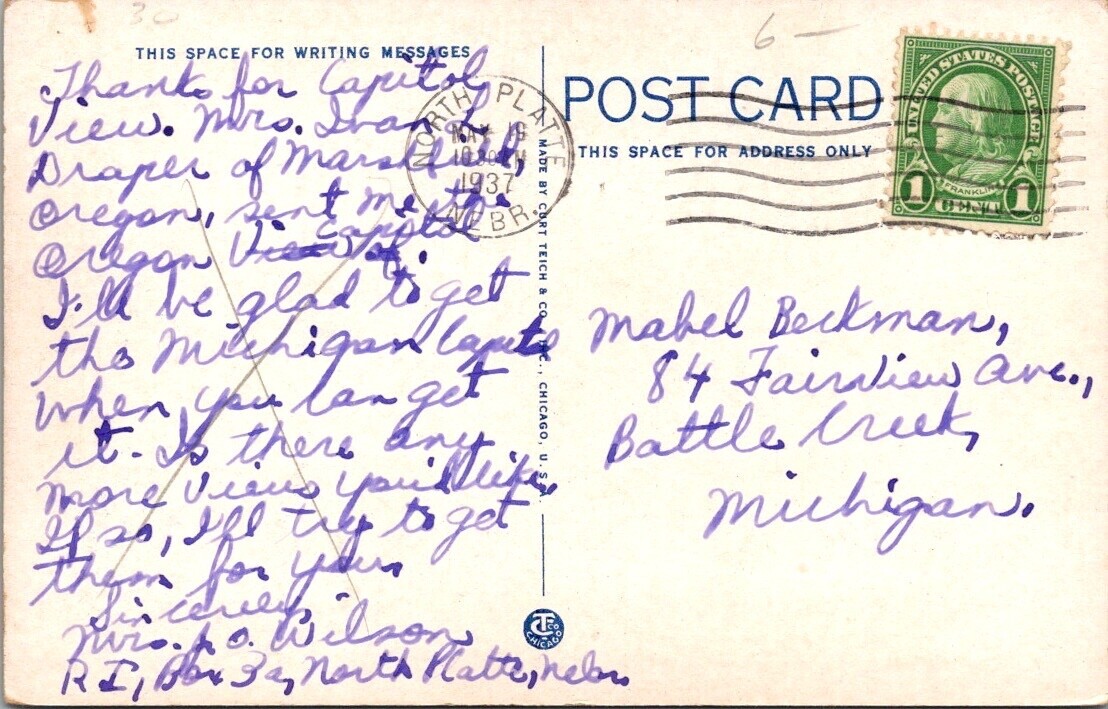 30
6 —
THIS SPACE FOR WRITING MESSAGES
Thanks for Capitol
View. Mrs. Ivan L.
Draper of Marshfield,
Oregon, sent me the
Oregon Capitol
I'll be glad to get
the Michigan Capitol
when you can get
it. Is there any
more views you'd like.
If so, I'll try to get
them for you.
Sincerely,
Mrs. J. O. Wilson
R I, Box 3a, North Platte, Nebr.
NORTH PLATTE
1937
NEBR.
MADE BY CURT TEICH & CO., INC., CHICAGO, U.S.A.
CTCO
CHICAGO
POST CARD
THIS SPACE FOR ADDRESS ONLY
UNITED STATES POSTAGE
FRANKLIN
1 CENT 1
Mabel Beckman,
84 Fairview Ave.,
Battle Creek,
Michigan.